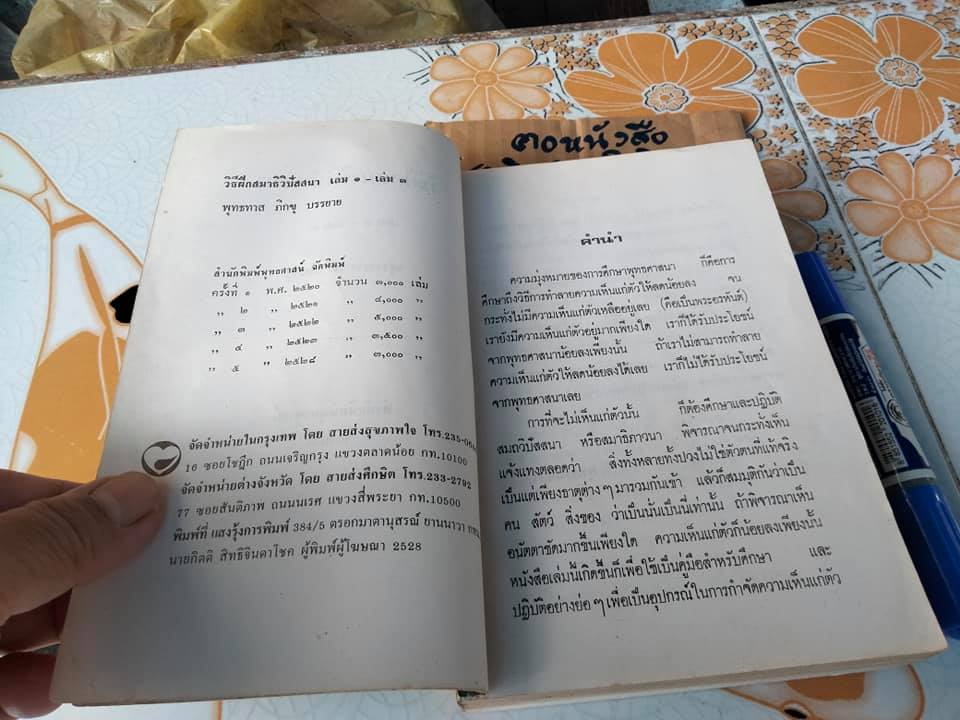 ฅอหนังสือ
วิธีฝึกสมาธิวิปัสสนา เล่ม ๑ – เล่ม ๓
พุทธทาส ภิกขุ บรรยาย
สำนักพิมพ์พุทธศาสน์ จัดพิมพ์
ครั้งที่ ๑ พ.ศ. ๒๕๒๐ จำนวน ๓,๐๐๐ เล่ม
„ ๒ „ ๒๕๒๑ „ ๔,๐๐๐ „
„ ๓ „ ๒๕๒๒ „ ๕,๐๐๐ „
„ ๔ „ ๒๕๒๓ „ ๓,๕๐๐ „
„ ๕ „ ๒๕๒๘ „ ๓,๐๐๐ „
จัดจำหน่ายในกรุงเทพ โดย สายส่งสุขภาพใจ โทร.235-06
16 ซอยโชฎึก ถนนเจริญกรุง แขวงตลาดน้อย กท.10100
จัดจำหน่ายต่างจังหวัด โดย สายส่งศึกษิต โทร.233-2792
77 ซอยสันติภาพ ถนนนเรศ แขวงสี่พระยา กท.10500
พิมพ์ที่ แสงรุ้งการพิมพ์ 384/5 ตรอกมาตานุสรณ์ ยานนาวา
นายกิตติ สิทธิจินดาโชค ผู้พิมพ์ผู้โฆษณา 2528
คำนำ
ความมุ่งหมายของการศึกษาพุทธศาสนา ก็คือการ
ศึกษาถึงวิธีการทำลายความเห็นแก่ตัวให้ลดน้อยลง จน
กระทั่งไม่มีความเห็นแก่ตัวเหลืออยู่เลย (คือเป็นพระอรหันต์)
เรายังมีความเห็นแก่ตัวอยู่มากเพียงใด เราก็ได้รับประโยชน์
จากพุทธศาสนาน้อยลงเพียงนั้น ถ้าเราไม่สามารถทำลาย
ความเห็นแก่ตัวให้ลดน้อยลงได้เลย เราก็ไม่ได้รับประโยชน์
จากพุทธศาสนาเลย
การที่จะไม่เห็นแก่ตัวนั้น ก็ต้องศึกษาและปฏิบัติ
สมถวิปัสสนา หรือสมาธิภาวนา พิจารณาจนกระทั่งเห็น
แจ้งแทงตลอดว่า สิ่งทั้งหลายทั้งปวงไม่ใช่ตัวตนที่แท้จริง
เป็นแต่เพียงธาตุต่าง ๆ มารวมกันเข้า แล้วก็สมมุติกันว่าเป็น
คน สัตว์ สิ่งของ ว่าเป็นนั่นเป็นนี่เท่านั้น ถ้าพิจารณาเห็น
อนัตตาชัดมากขึ้นเพียงใด ความเห็นแก่ตัวก็น้อยลงเพียงนั้น
หนังสือเล่มนี้เกิดขึ้นก็เพื่อใช้เป็นคู่มือสำหรับศึกษา และ
ปฏิบัติอย่างย่อ ๆ เพื่อเป็นอุปกรณ์ในการกำจัดความเห็นแก่ตัว